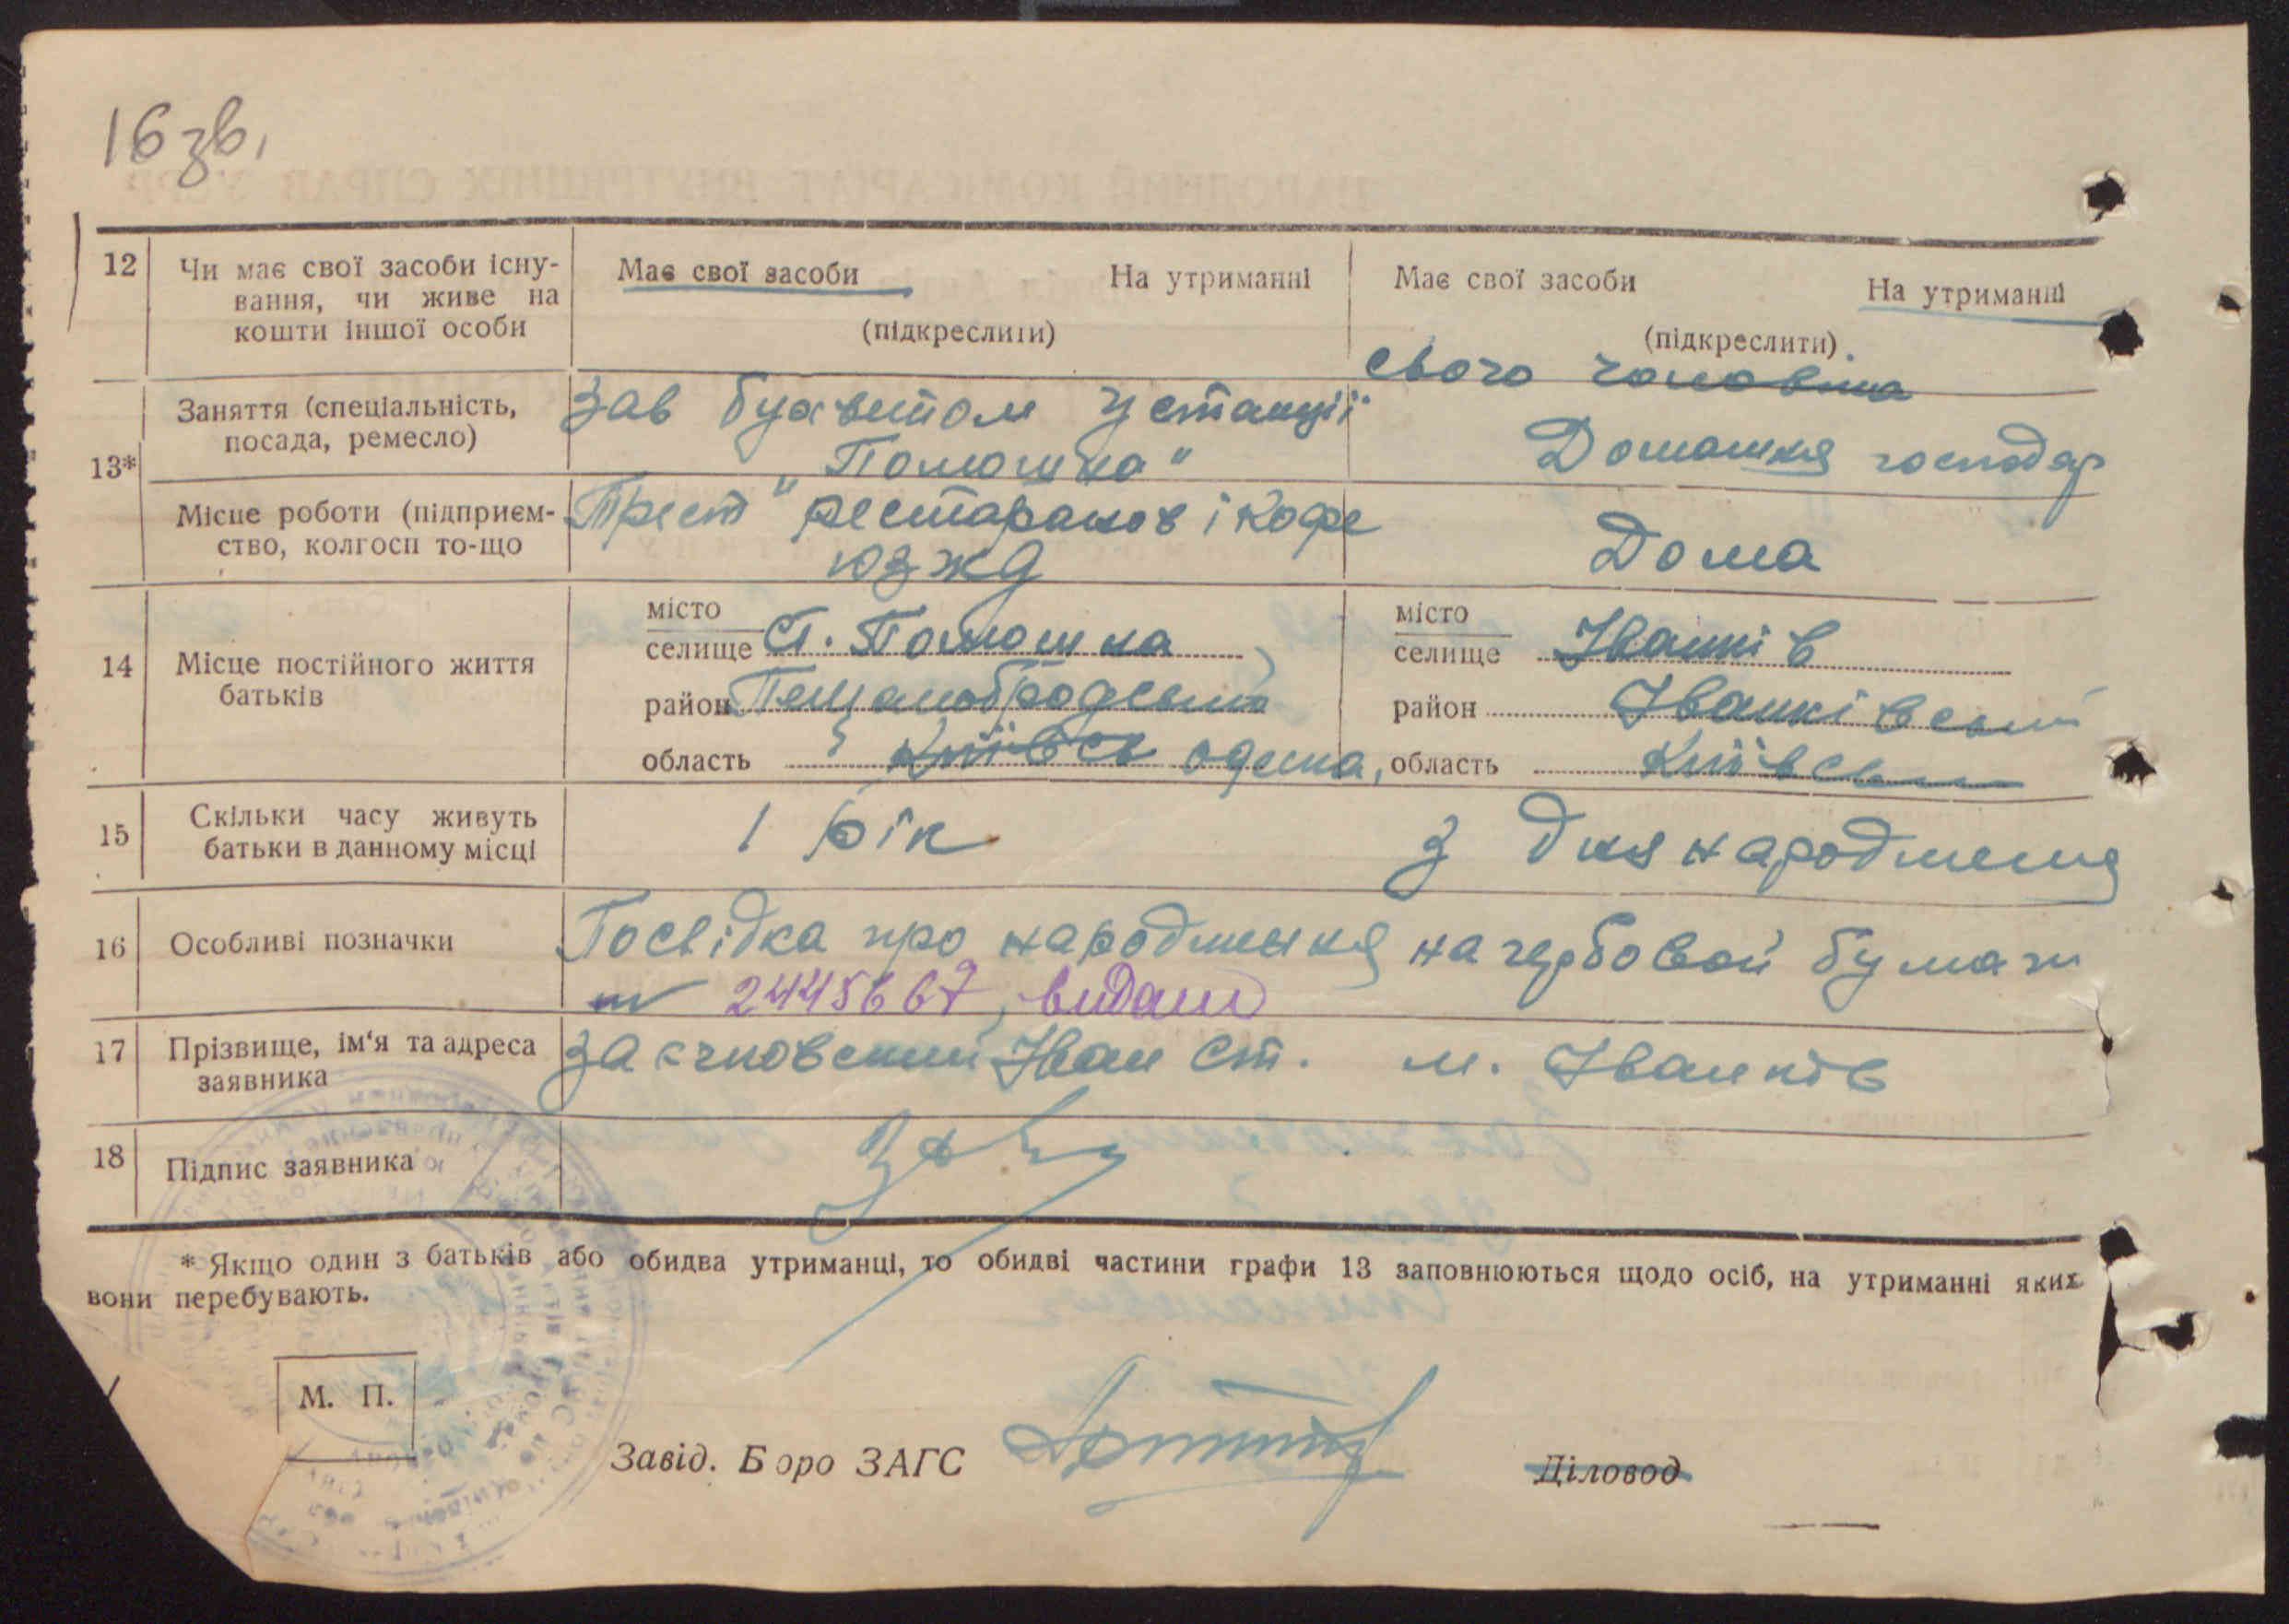 16 зв.
12 Чи має свої засоби існу- Має свої засоби На утриманні Має свої засоби На утриманні
вання, чи живе на
кошти іншої особи (підкреслити) (підкреслити).
свого чоловіка
13* Заняття (спеціальність, Зав буфетом у станції
посада, ремесло) „Помошна" Домашня господар
Місце роботи (підприєм- Трест ресторанов і кофе
ство, колгосп то-що ЮЗЖД Дома
14 Місце постійного життя
батьків
місто
селище Ст. Помошна
район Пещанобродський
область Київськ одеська,
місто
селище Іванків
район Іванківський
область Київська
15 Скільки часу живуть
батьки в данному місці 1 рік з дня народження
16 Особливі позначки Посвідка про народження на гербовой бумаги
№ 2445667, видани
17 Прізвище, ім'я та адреса
заявника Іван Ст. м. Іванків
18 Підпис заявника
* Якщо один з батьків або обидва утриманці, то обидві частини графи 13 заповнюються щодо осіб, на утриманні яких
вони перебувають.
М. П.
Завід. Бюро ЗАГС Діловод